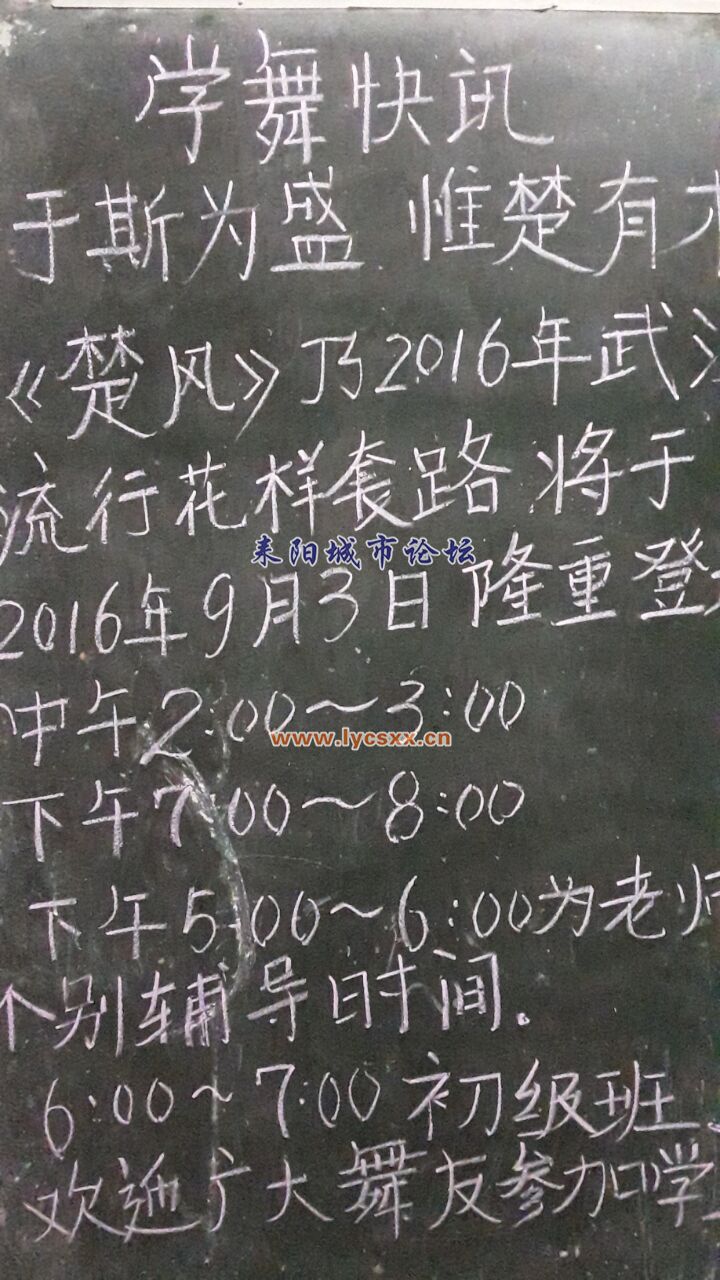 学舞快讯
于斯为盛 惟楚有
《楚风》乃2016年武
流行花样套路 将于
耒阳城市论坛
2016年9月3日隆重登
中午2:00～3:00
www.lycsxx.cn
下午7:00～8:00
下午5:00～6:00为老师
个别辅导时间。
6:00～7:00初级班
欢迎广大舞友参加学